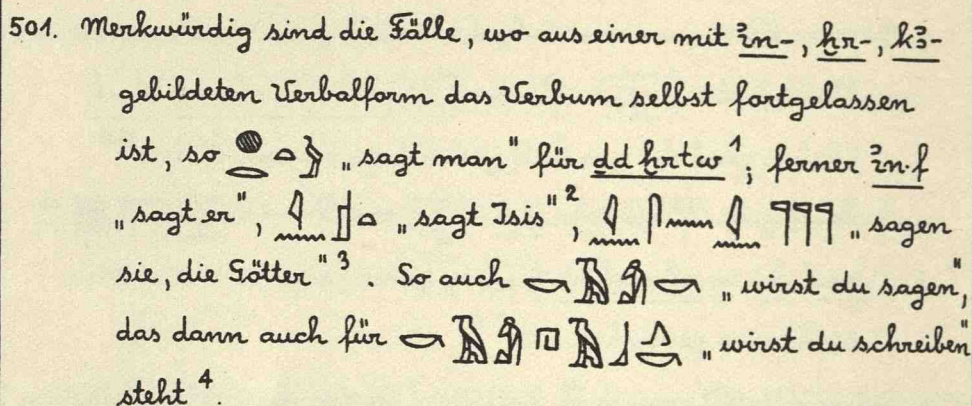 501. Merkwürdig sind die Fälle, wo aus einer mit ỉn-, ḫr-, kꜣ-
gebildeten Verbalform das Verbum selbst fortgelassen
ist, so 𓐍𓂋𓏏𓅱 „sagt man" für ḏd ḫrtw ¹; ferner ỉn·f
„sagt er", 𓇋𓈖𓊨𓏏 „sagt Isis" ², 𓇋𓈖𓋴𓈖𓇋𓈖𓊹𓊹𓊹 „sagen
sie, die Götter" ³. So auch 𓎡𓄿𓀁𓎡 „wirst du sagen",
das dann auch für 𓎡𓄿𓀁𓉔𓄿𓃀𓂻𓎡 „wirst du schreiben"
steht ⁴.